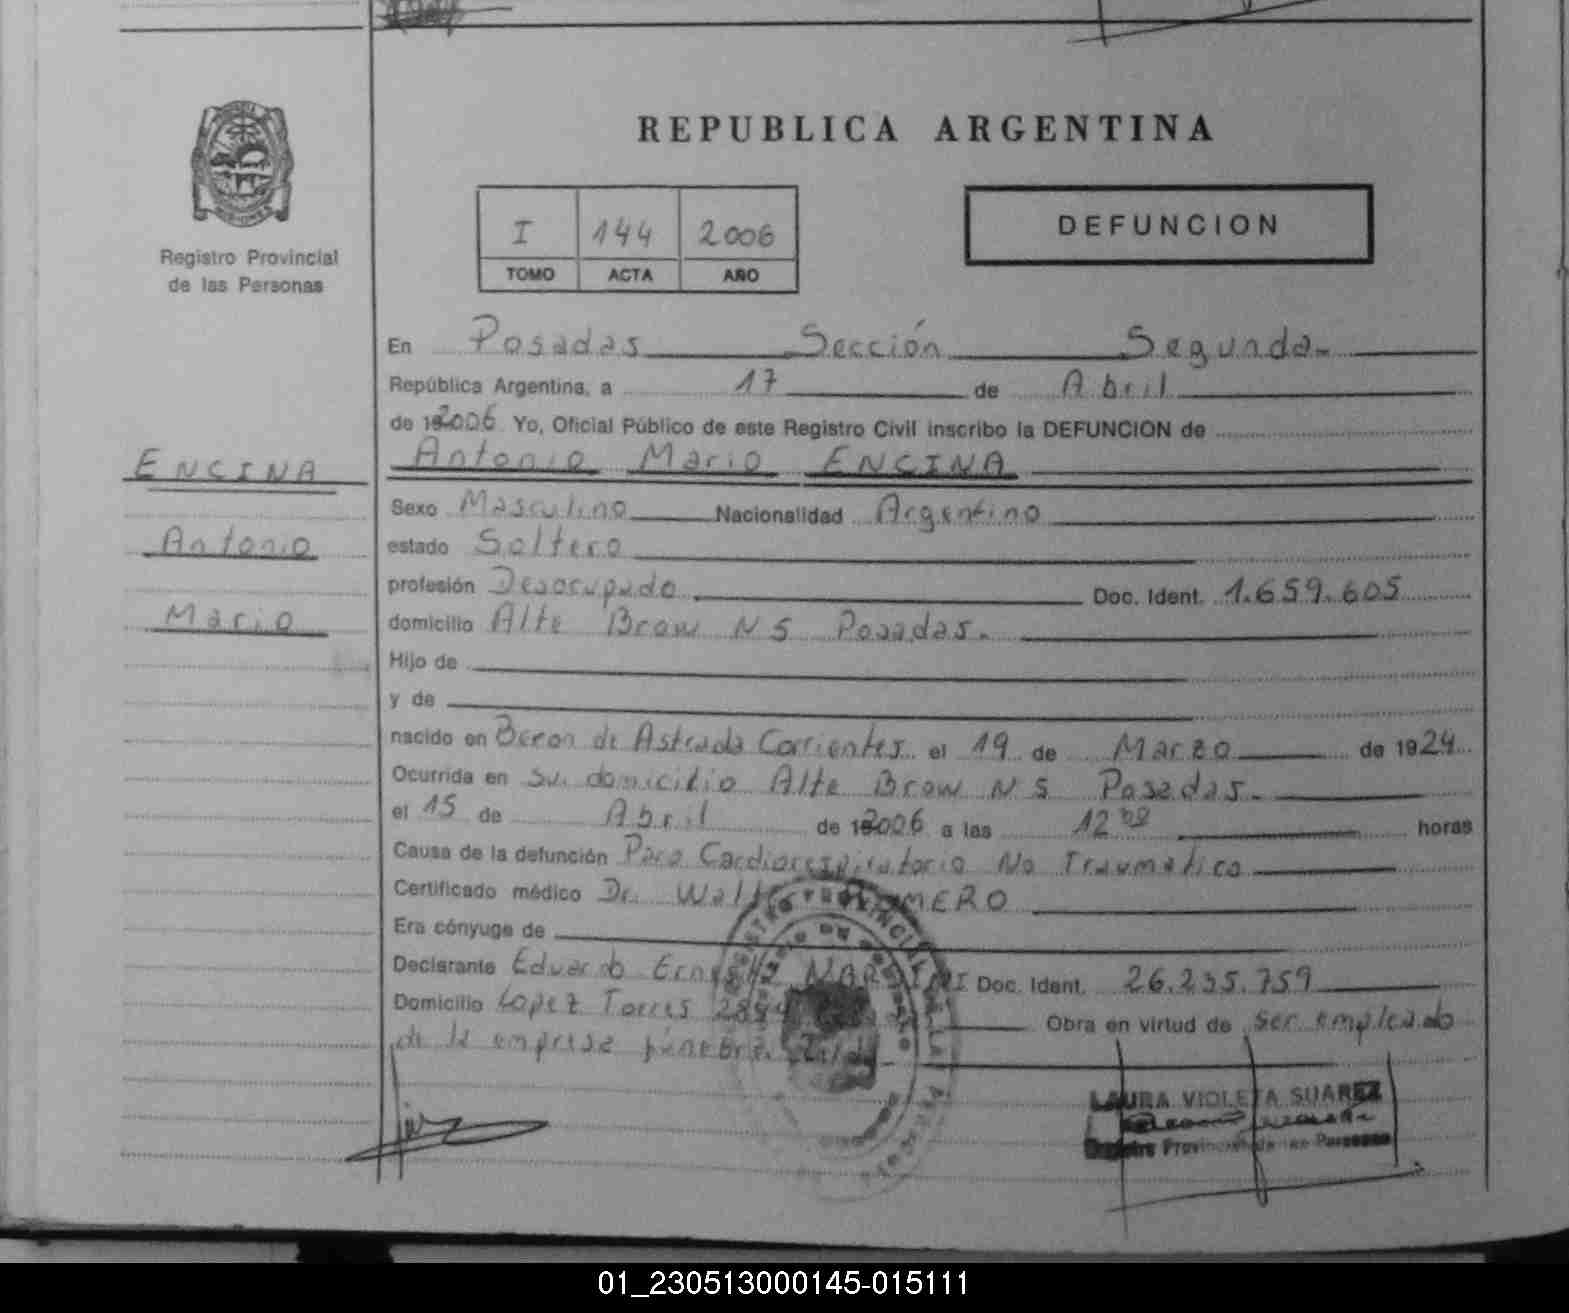 REPUBLICA ARGENTINA
Registro Provincial
de las Personas
I 144 2006
TOMO ACTA AÑO
DEFUNCION
En Posadas Sección Segunda
República Argentina, a 17 de Abril
de 2006 Yo, Oficial Público de este Registro Civil inscribo la DEFUNCION de
ENCINA
Antonio
Mario
Antonio Mario ENCINA
Sexo Masculino Nacionalidad Argentino
estado Soltero
profesión Desocupado Doc. Ident. 1.659.605
domicilio Alte Brow N 5 Posadas.
Hijo de
y de
nacido en Beron de Astrada Corrientes el 19 de Marzo de 1924
Ocurrida en su domicilio Alte Brow N 5 Posadas.
el 15 de Abril de 2006 a las 12 00 horas
Causa de la defunción Paro Cardiorespiratorio No Traumatico
Certificado médico Dr. Walter ROMERO
Era cónyuge de
Declarante Eduardo Doc. Ident. 26.235.759
Domicilio Lopez Torres Obra en virtud de ser empleado
de la empresa fúnebre
LAURA VIOLETA SUAREZ
Registro Provincial de las Personas
01_230513000145-015111